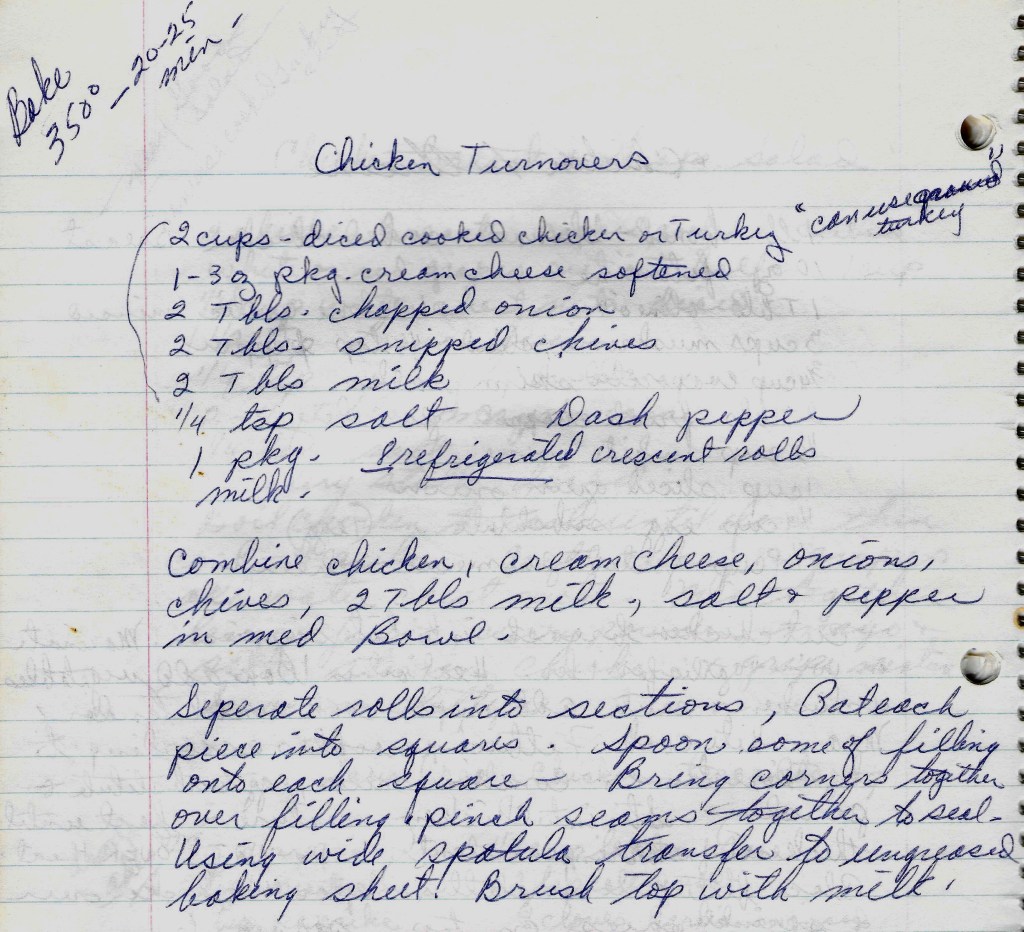 Bake
350° - 20-25
min -
Chicken Turnovers
2 cups - diced cooked chicken or Turkey "can use ground"
turkey
1 - 3 oz pkg. cream cheese softened
2 Tbls. chopped onion
2 Tbls. snipped chives
2 Tbls milk
1/4 tsp salt Dash pepper
1 pkg. 8 refrigerated crescent rolls
milk.
Combine chicken, cream cheese, onions,
chives, 2 Tbls milk, salt & pepper
in med Bowl.
Seperate rolls into sections, Pat each
piece into squares. Spoon some of filling
onto each square - Bring corners together
over filling, pinch seams together to seal -
Using wide spatula transfer to ungreased
baking sheet. Brush top with milk.